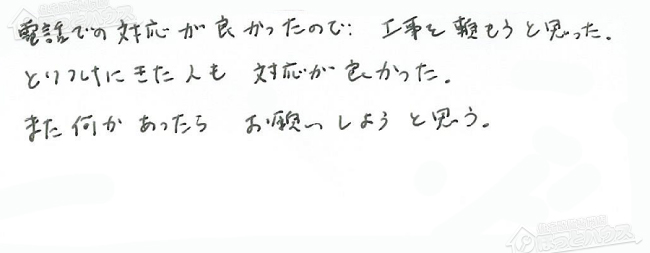 電話での対応が良かったので: 工事を頼もうと思った.
とりつけにきた人も 対応が良かった.
また何かあったら お願いしようと思う。